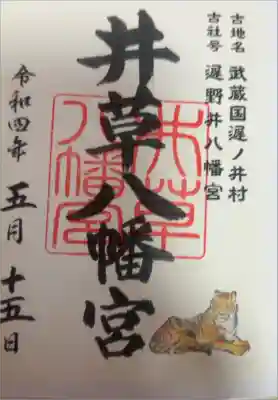 古地名 武蔵国遅ノ井村
古社号 遅野井八幡宮
井草八幡宮
井草八幡宮
令和四年 五月 十五日